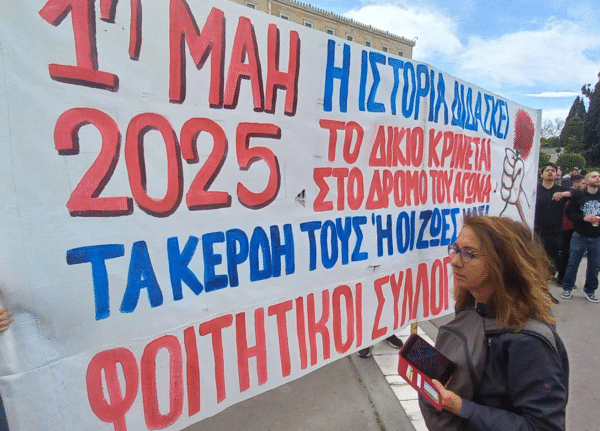 1η ΜΑΗ
2025
Η ΙΣΤΟΡΙΑ ΔΙΔΑΣΚΕΙ
ΤΟ ΔΙΚΙΟ ΚΡΙΝΕΤΑΙ
ΣΤΟ ΔΡΟΜΟ ΤΟΥ ΑΓΩΝΑ
ΤΑ ΚΕΡΔΗ ΤΟΥΣ Ή ΟΙ ΖΩΕΣ
ΦΟΙΤΗΤΙΚΟΙ